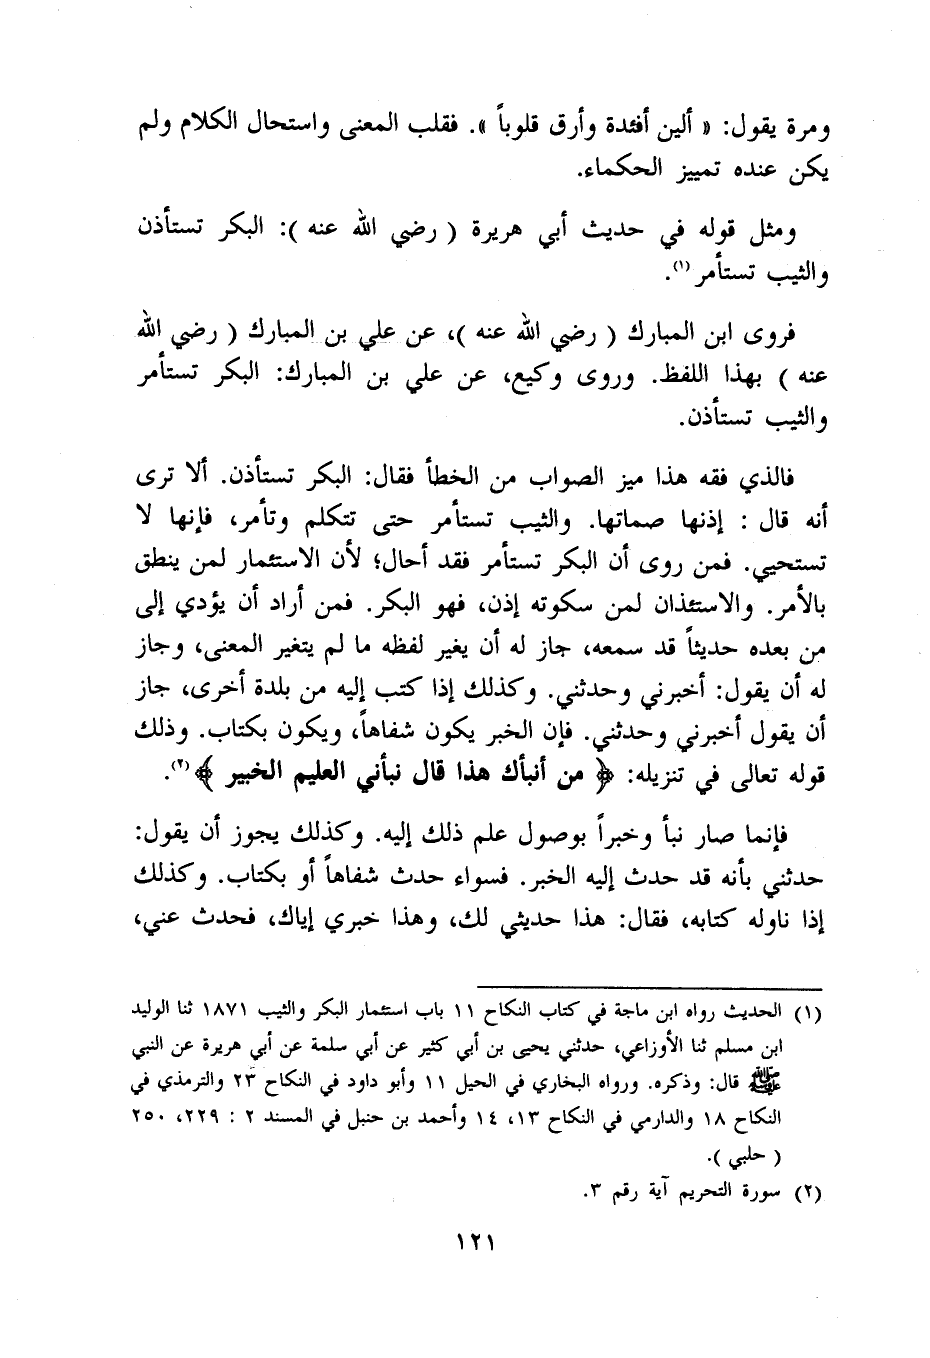 ومرة يقول: « ألين أفئدة وأرق قلوباً ». فقلب المعنى واستحال الكلام ولم
يكن عنده تمييز الحكماء.
ومثل قوله في حديث أبي هريرة ( رضي الله عنه ): البكر تستأذن
والثيب تستأمر (١).
فروى ابن المبارك ( رضي الله عنه )، عن علي بن المبارك ( رضي الله
عنه ) بهذا اللفظ. وروى وكيع، عن علي بن المبارك: البكر تستأمر
والثيب تستأذن.
فالذي فقه هذا ميز الصواب من الخطأ فقال: البكر تستأذن. ألا ترى
أنه قال : إذنها صماتها. والثيب تستأمر حتى تتكلم وتأمر، فإنها لا
تستحيي. فمن روى أن البكر تستأمر فقد أحال؛ لأن الاستئمار لمن ينطق
بالأمر. والاستئذان لمن سكوته إذن، فهو البكر. فمن أراد أن يؤدي إلى
من بعده حديثاً قد سمعه، جاز له أن يغير لفظه ما لم يتغير المعنى، وجاز
له أن يقول: أخبرني وحدثني. وكذلك إذا كتب إليه من بلدة أخرى، جاز
أن يقول أخبرني وحدثني. فإن الخبر يكون شفاهاً، ويكون بكتاب. وذلك
قوله تعالى في تنزيله: ﴿ من أنبأك هذا قال نبأني العليم الخبير ﴾(٢).
فإنما صار نبأ وخبراً بوصول علم ذلك إليه. وكذلك يجوز أن يقول:
حدثني بأنه قد حدث إليه الخبر. فسواء حدث شفاهاً أو بكتاب. وكذلك
إذا ناوله كتابه، فقال: هذا حديثي لك، وهذا خبري إياك، فحدث عني،
(١) الحديث رواه ابن ماجة في كتاب النكاح ١١ باب استئمار البكر والثيب ١٨٧١ ثنا الوليد
ابن مسلم ثنا الأوزاعي، حدثني يحيى بن أبي كثير عن أبي سلمة عن أبي هريرة عن النبي
ﷺ قال: وذكره. ورواه البخاري في الحيل ١١ وأبو داود في النكاح ٢٣ والترمذي في
النكاح ١٨ والدارمي في النكاح ١٣، ١٤ وأحمد بن حنبل في المسند ٢ : ٢٢٩، ٢٥٠
( حلبي ).
(٢) سورة التحريم آية رقم ٣.
١٢١